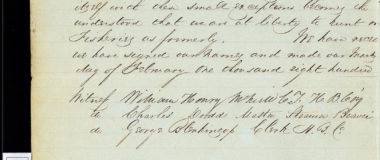 itself with these small exceptions becomes the
understood that we are at liberty to hunt on
Fisheries as formerly. We have
we have signed our names and made our marks
day of February One thousand eight hundred
Witness William Henry McNeill C.T. H B Coy
do Charles Dodd Master Steamer Beaver
do George Clerk H. B. C